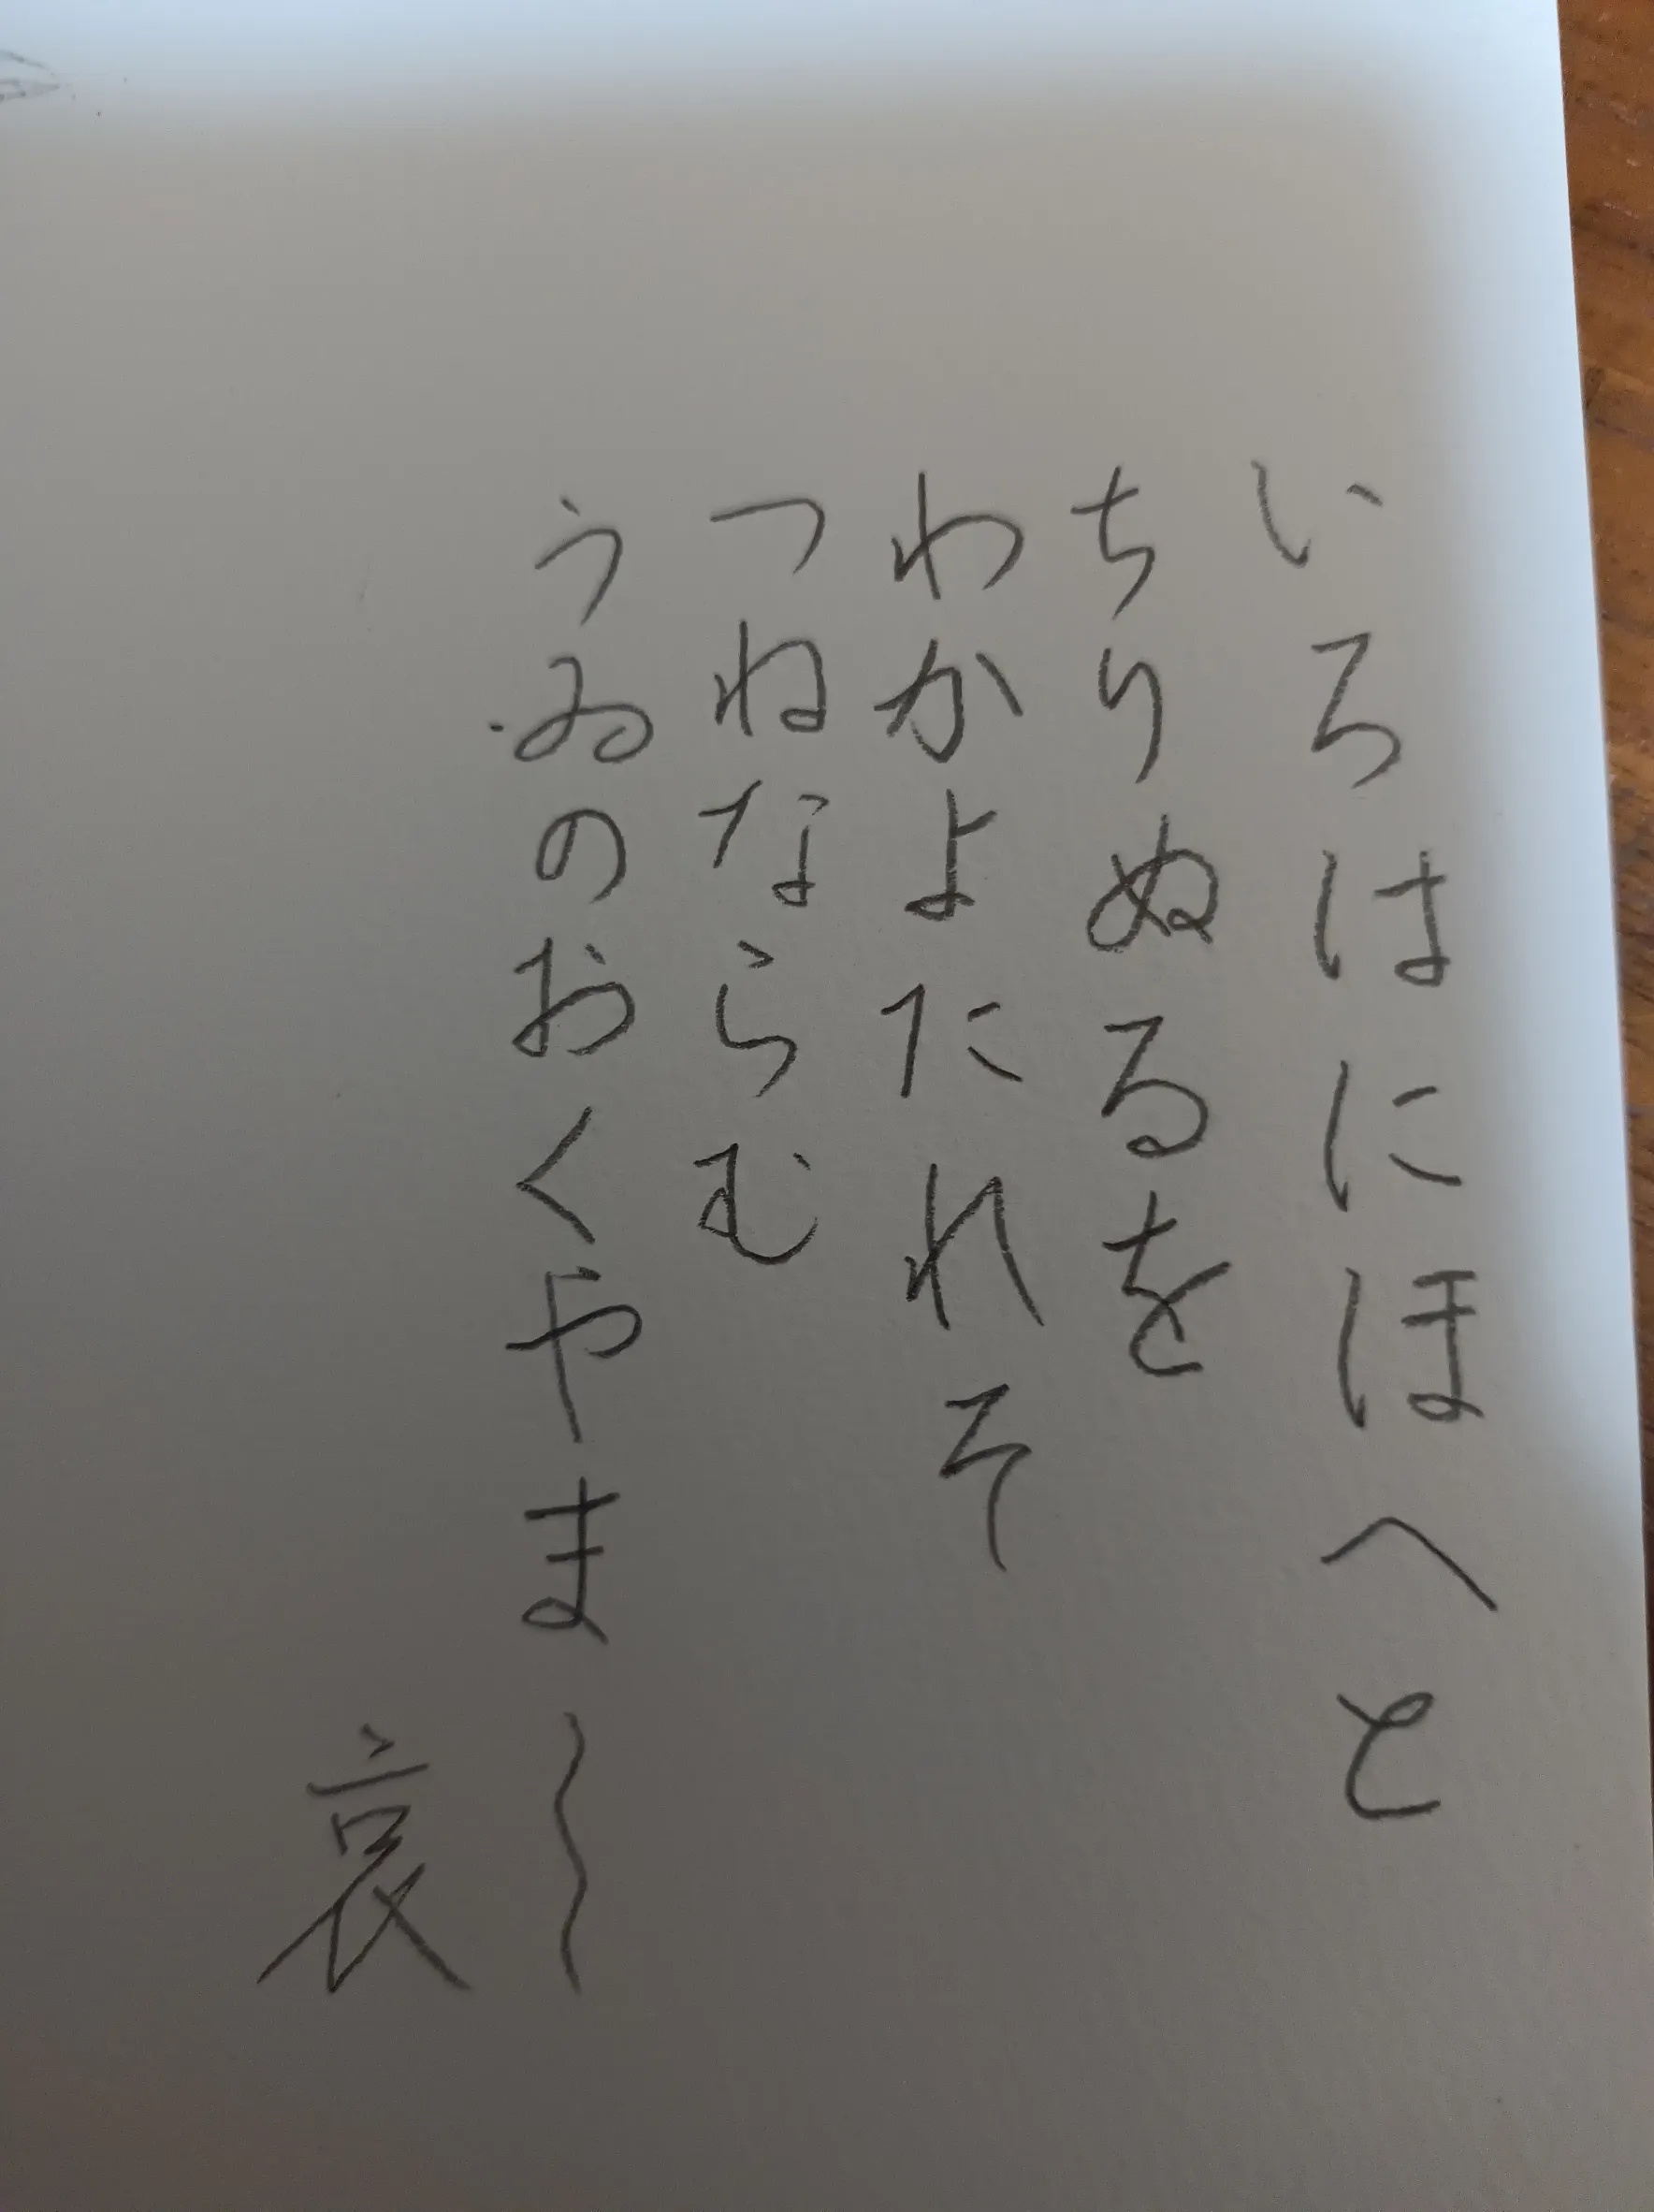 いろはにほへと
ちりぬるを
わかよたれそ
つねならむ
うゐのおくやま〜
哀